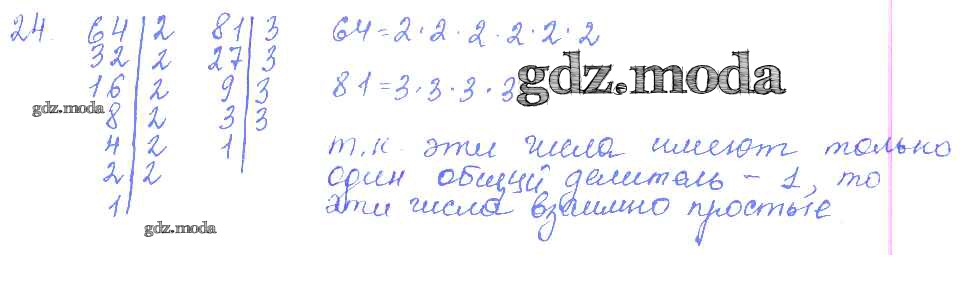 24. 64 | 2 81 | 3 64=2·2·2·2·2·2
32 | 2 27 | 3
16 | 2 9 | 3 81=3·3·3·3 gdz.moda
gdz.moda
8 | 2 3 | 3
4 | 2 1 | т.к. эти числа имеют только
2 | 2 один общий делитель – 1, то
1 | эти числа взаимно простые
gdz.moda